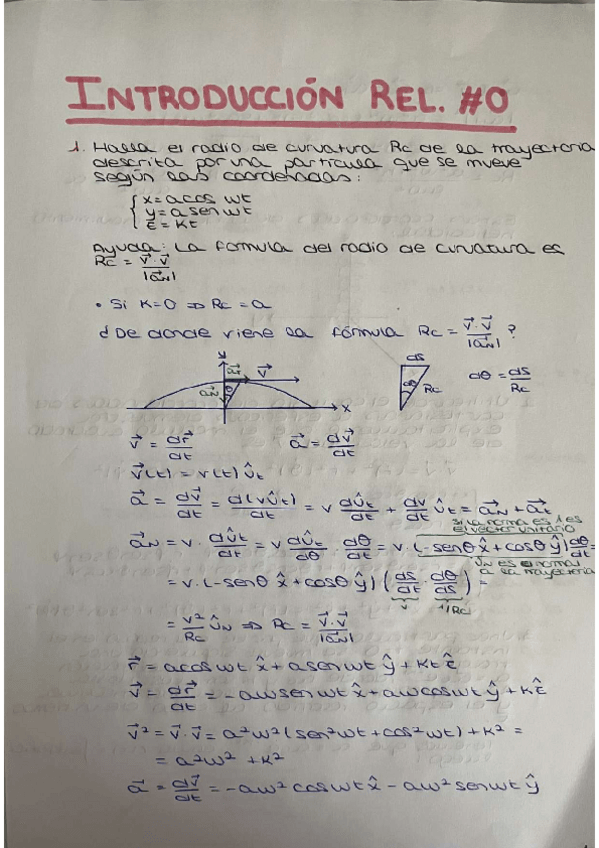 INTRODUCCIÓN REL. #0
1. Halla el radio de curvatura Rc de la trayectoria
descrita por una partícula que se mueve
según las coordenadas:
x = a cos wt
y = a sen wt
z = Kt
Ayuda: La fórmula del radio de curvatura es
Rc = v⃗·v⃗ / |a⃗N|
• Si K=0 ⇒ Rc = a
¿De donde viene la fórmula Rc = v⃗·v⃗ / |a⃗N| ?
y v⃗ x
ds dθ Rc dθ = ds/Rc
v⃗ = dr⃗/dt a⃗ = dv⃗/dt
v⃗(t) = v(t) ût
a⃗ = dv⃗/dt = d(vût)/dt = v dût/dt + dv/dt ût = a⃗N + a⃗t
Si la norma es 1 es
el vector unitario
a⃗N = v · dût/dt = v dût/dθ · dθ/dt = v · (-senθ x̂ + cosθ ŷ) dθ/dt =
ûN es el normal
a la trayectoria
= v · (-senθ x̂ + cosθ ŷ) (ds/dt · dθ/ds) =
v 1/Rc
= v²/Rc ûN ⇒ Rc = v⃗·v⃗ / |a⃗N|
r⃗ = a cos wt x̂ + a sen wt ŷ + Kt ẑ
v⃗ = dr⃗/dt = -aw sen wt x̂ + aw cos wt ŷ + K ẑ
v⃗² = v⃗·v⃗ = a²w² (sen²wt + cos²wt) + K² =
= a²w² + K²
a⃗ = dv⃗/dt = -aw² cos wt x̂ - aw² sen wt ŷ